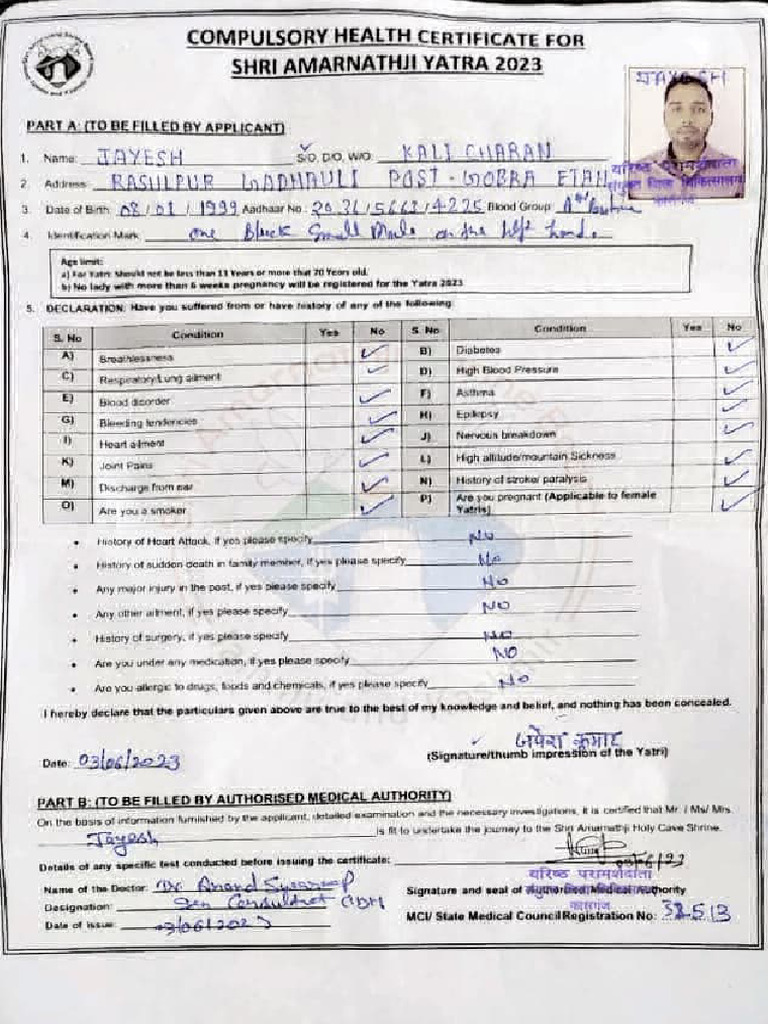 COMPULSORY HEALTH CERTIFICATE FOR
SHRI AMARNATHJI YATRA 2023
PART A: (TO BE FILLED BY APPLICANT)
1. Name: JAYESH S/O, D/O, W/O KALI CHARAN
2. Address: RASULPUR GADHAULI POST-GOBRA ETAH
3. Date of Birth 08/01/1999 Aadhaar No: 2036/5663/4225 Blood Group:
4. Identification Mark one Black Small Mole on the left hand.
Age limit:
a) For Yatri: Should not be less than 13 Years or more that 70 Years old.
b) No lady with more than 6 weeks pregnancy will be registered for the Yatra 2023
5. DECLARATION: Have you suffered from or have history of any of the following:
S. No Condition Yes No S. No Condition Yes No
A) Breathlessness ✓ B) Diabetes ✓
C) Respiratory/Lung ailment ✓ D) High Blood Pressure ✓
E) Blood disorder ✓ F) Asthma ✓
G) Bleeding tendencies ✓ H) Epilepsy ✓
I) Heart ailment ✓ J) Nervous breakdown ✓
K) Joint Pains ✓ L) High altitude/mountain Sickness ✓
M) Discharge from ear ✓ N) History of stroke/ paralysis ✓
O) Are you a smoker ✓ P) Are you pregnant (Applicable to female Yatris) ✓
• History of Heart Attack, if yes please specify No
• History of sudden death in family member, if yes please specify No
• Any major injury in the past, if yes please specify NO
• Any other ailment, if yes please specify NO
• History of surgery, if yes please specify NO
• Are you under any medication, if yes please specify NO
• Are you allergic to drugs, foods and chemicals, if yes please specify No
I hereby declare that the particulars given above are true to the best of my knowledge and belief, and nothing has been concealed.
Date: 03/06/2023
(Signature/thumb impression of the Yatri)
PART B: (TO BE FILLED BY AUTHORISED MEDICAL AUTHORITY)
On the basis of information furnished by the applicant, detailed examination and the necessary investigations, it is certified that Mr. / Ms/ Mrs.
Jayesh is fit to undertake the journey to the Shri Amarnathji Holy Cave Shrine.
Details of any specific test conducted before issuing the certificate:
वरिष्ठ परामर्शदाता
Name of the Doctor: Dr. Anand Swaroop Signature and seal of Authorised Medical Authority
Designation: Sen Consultant
कासगंज
Date of issue: 03/06/2023 MCI/ State Medical Council Registration No: 38513